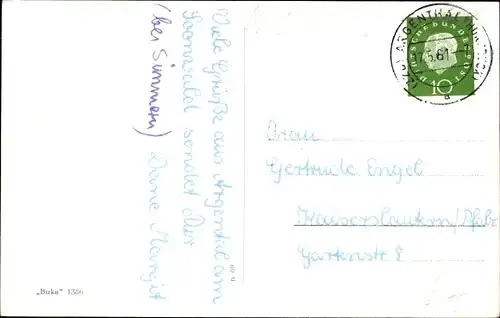 Viele Grüße aus Argenthal am
Soonwald sendet Dir
(bei Simmern) Deine Margit
Frau
Gertrude Engel
Kaiserslautern/Pfalz
Gartenstr 8
„Buka" 1356
DEUTSCHE BUNDESPOST
10
ARGENTHAL
61
a